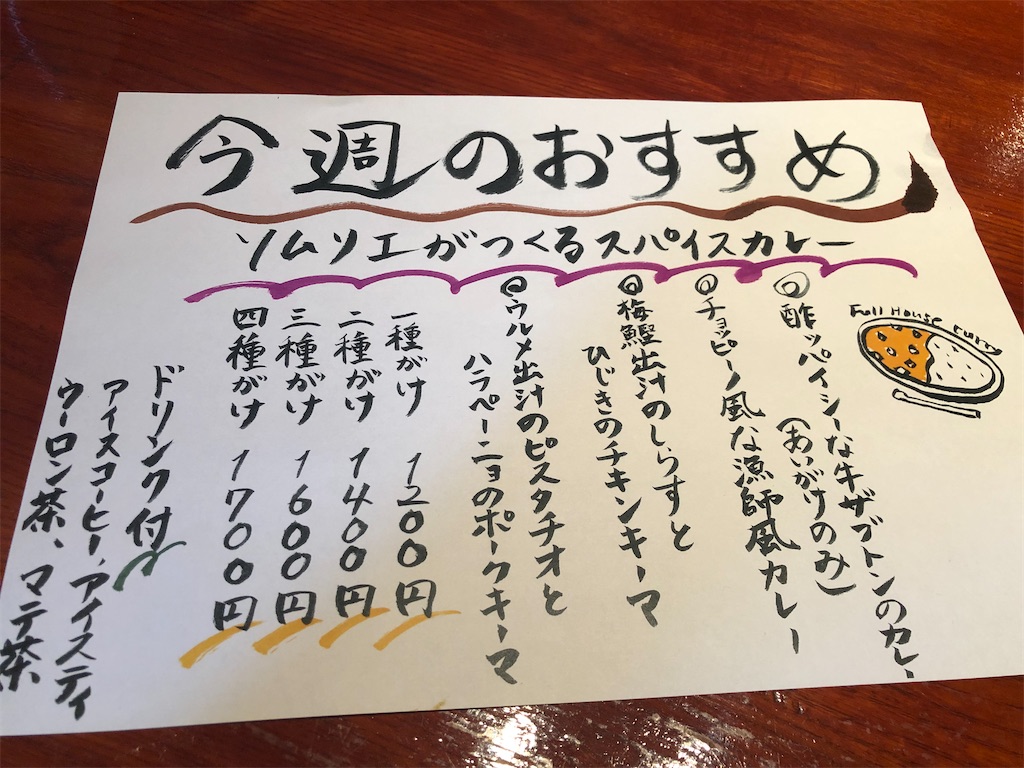 今週のおすすめ
ソムソエがつくるスパイスカレー
Full House curry
◎酢ッパイシーな牛ザブトンのカレー
(あいがけのみ)
◎チョッピーノ風な漁師風カレー
◎梅鰹出汁のしらすと
ひじきのチキンキーマ
◎ウルメ出汁のピスタチオと
ハラペーニョのポークキーマ
一種がけ 1200円
二種がけ 1400円
三種がけ 1600円
四種がけ 1700円
ドリンク付
アイスコーヒー、アイスティ
ウーロン茶、マテ茶